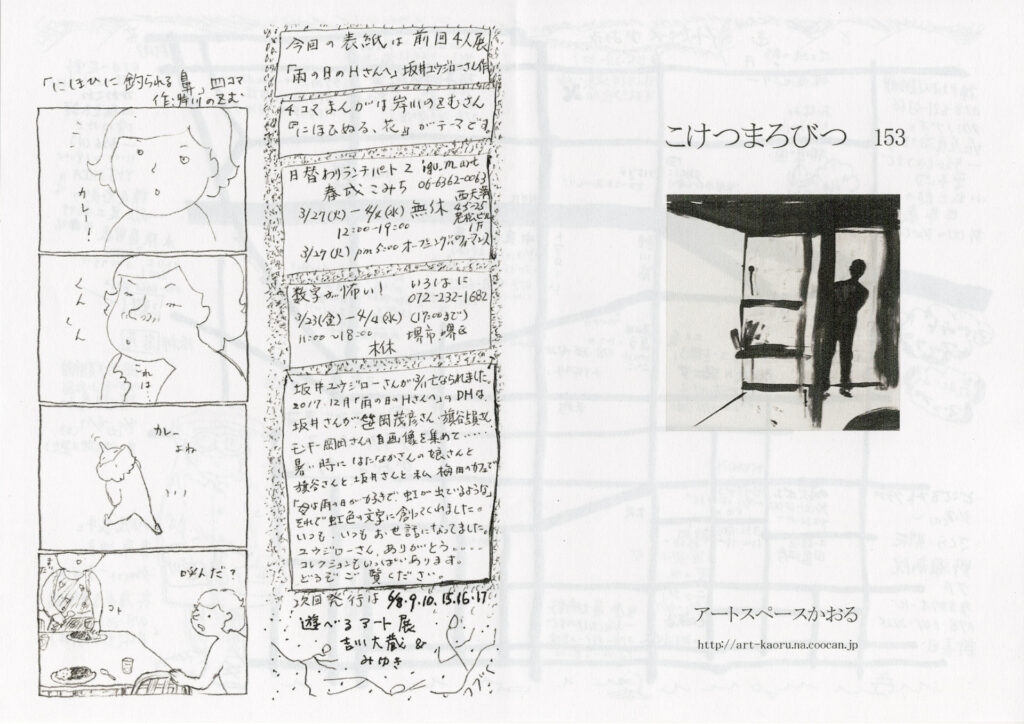 「にほひに釣られる鼻」四コマ
作:岸川のぞむ
カレー!
くん
くん
これ
は
カレー
よね
・・・
呼んだ?
コト
今回の表紙は前回4人展
「雨の日のHさんへ」坂井ユウジローさん作
4コマまんがは岸川のぞむさん
『にほひぬる、花』がテーマです。
日替わりランチパート2
06-6362-0063
春式こみち
西天満
4-5-25
老松ビル
1F
3/27(火)−4/4(水) 無休
12:00-19:00
3/27(火)pm5:00 オープニングパフォーマンス
数字が怖い! いろはに
072-232-1682
3/23(金)−4/4(水)(17:00まで)
11:00〜18:00 堺市堺区
木休
坂井ユウジローさんが 亡なられました。
2017.12月「雨の日のHさんへ」のDMは
坂井さんが笹岡茂彦さん、旗谷
モンドー岡岡さんの自画像を集めて・・・・・
暑い時にはたなかさんの娘さんと
旗谷さんと坂井さんと私 梅田のカフェで
「母は雨の日がすきで、虹が出ているような」
それで虹色の文字に創ってくれました。
いつも いつも お世話になってました。
ユウジローさん、ありがとう・・・・・
コレクションもいっぱいあります。
どうぞご覧ください。
次回発行は 6/8.9.10.15.16.17
遊べるアート展
吉川大蔵 &
みゆき
こけつまろびつ 153
アートスペースかおる
http://art-kaoru.na.coocan.jp